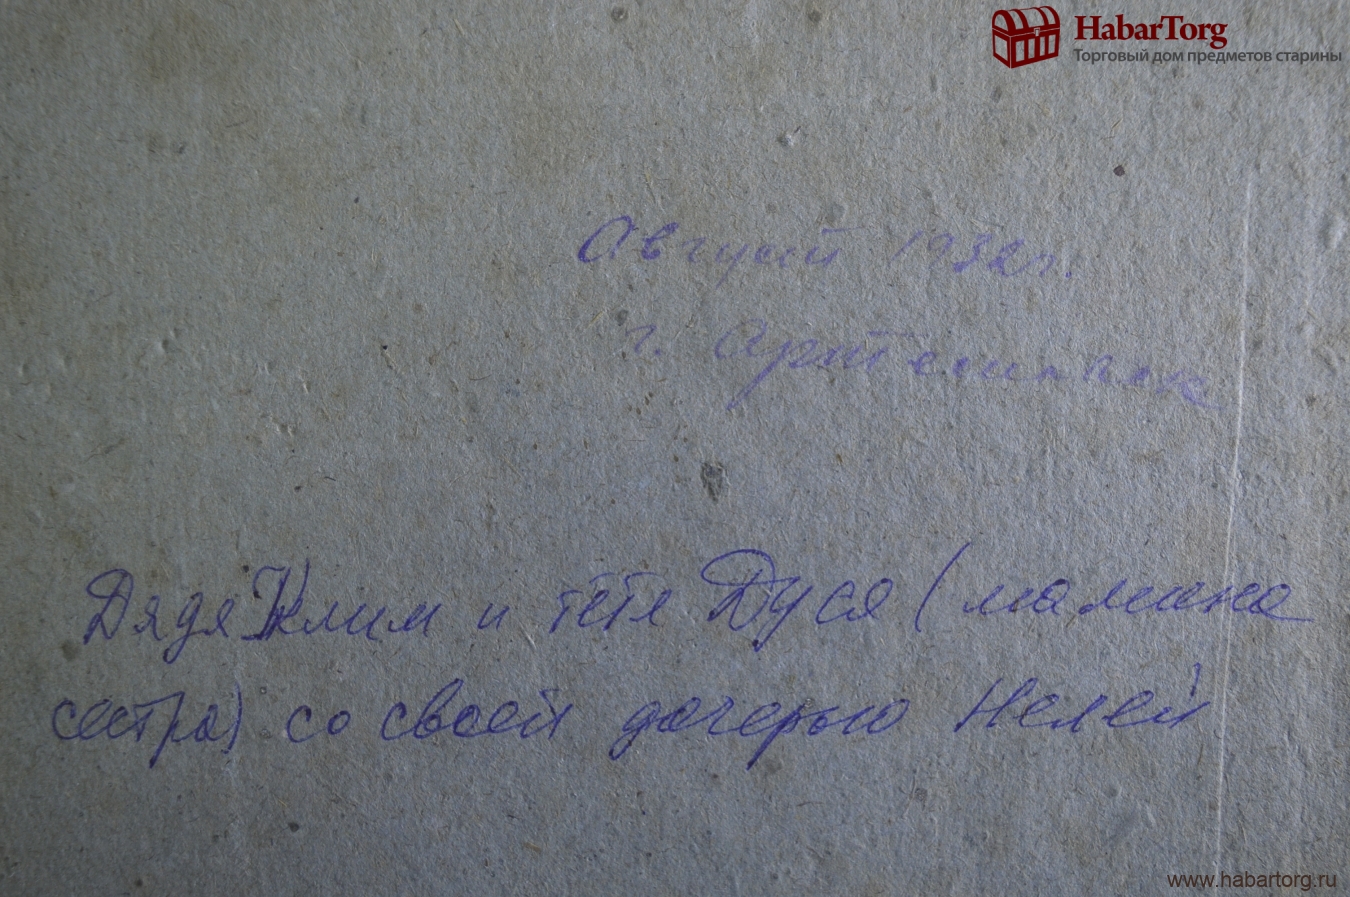 HabarTorg
Торговый дом предметов старины
Август 1932г.
г. Артемовск
Дядя Клим и тётя Дуся (мамина
сестра) со своей дочерью Нелей
www.habartorg.ru